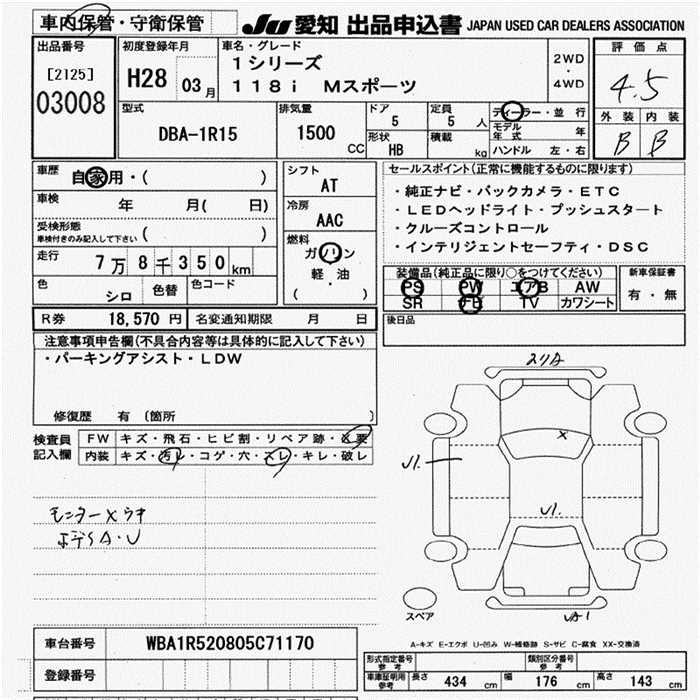 車内保管・守衛保管
JU 愛知 出品申込書 JAPAN USED CAR DEALERS ASSOCIATION
出品番号
[2125]
03008
初度登録年月
H28 03月
車名・グレード
1シリーズ
118i Mスポーツ
2WD
・
4WD
評価点
4.5
外装 内装
B B
型式
DBA-1R15
排気量
1500 CC
ドア
5
形状
HB
定員
5 人
積載
kg
ディーラー・並行
モデル年式 年
ハンドル 左・右
車歴
自家用・( )
車検
年 月( 日)
受検形態
車検付きのみ記入して下さい ( )
走行
7万8千350km
色
シロ
色替
色コード
シフト
AT
冷房
AAC
燃料
ガソリン
軽・油
( )
セールスポイント(正常に機能するものに限ります)
・純正ナビ・バックカメラ・ETC
・LEDヘッドライト・プッシュスタート
・クルーズコントロール
・インテリジェントセーフティ・DSC
装備品(純正品に限り○をつけてください)
PS PW エアB AW
SR ナビ TV カワシート
新車保証書
有・無
R券 18,570円 名変通知期限 月 日
後日品
注意事項申告欄(不具合内容等は具体的に記入して下さい)
・パーキングアシスト・LDW
修復歴 有 〔箇所 〕
検査員記入欄
FW キズ・飛石・ヒビ割・リペア跡・X要
内装 キズ・汚レ・コゲ・穴・スレ・キレ・破レ
モニターXウキ
ボデSA・U
スリA
X
U1.
U1.
UA1
スペア
A-キズ E-エクボ U-凹み W-補修跡 S-サビ C-腐食 XX-交換済
車台番号 WBA1R520805C71170
登録番号
形式指定番号 参考
類別区分番号 参考
車庫証明用 参考 長さ 434 cm 幅 176 cm 高さ 143 cm